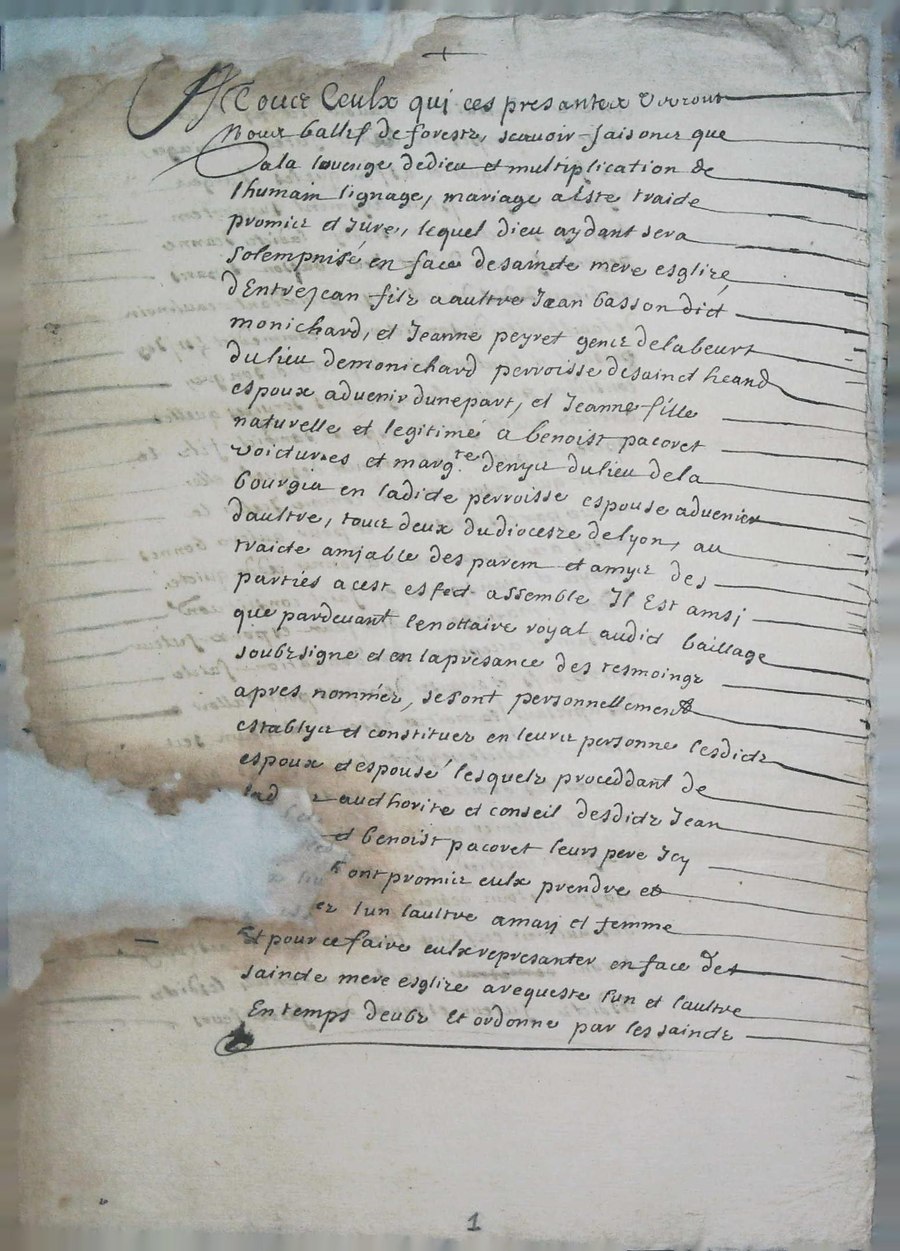 A Tous Ceulx qui ces presantes Verront
Nous ballif de forestz, scavoir faisons que
a la louenge de dieu et multiplication de
lhumain lignage, mariage a Este traicte
promis et Jure, lequel dieu aydant sera
Solempnisé en face de saincte mere esglize
dEntre Jean filz a aultre Jean basson dict
monichard, et Jeanne peyret gens de labeurt
du lieu de monichard perroisse de sainct heand
espoux advenir dune part, et Jeanne fille
naturelle et legitime a benoist pacoret
voictures et marg.te denys du lieu de la
bourgia en ladicte perroisse espouse advenier
daultre, tous deux du diocesze de lyon, au
traicte amjable des parens et amys des
parties a cest esfect assemble Il Est ainsi
que pardevant le nottaire royal audict baillage
soubzsigne et en la presance des tesmoingz
apres nommés, se sont personnellement
establys et constitues en leurs personne lesdictz
espoux et espousé lesquelz proceddant de
lad z aucthorite et conseil desdictz Jean
et benoist pacoret leurs pere Icy
ont promis eulx prendre et
er lun laultre a mary et femme
Et pour ce faire eulx representer en face de
saincte mere esglize a requeste lun et laultre
En temps deubz et ordonne par les sainctz
1